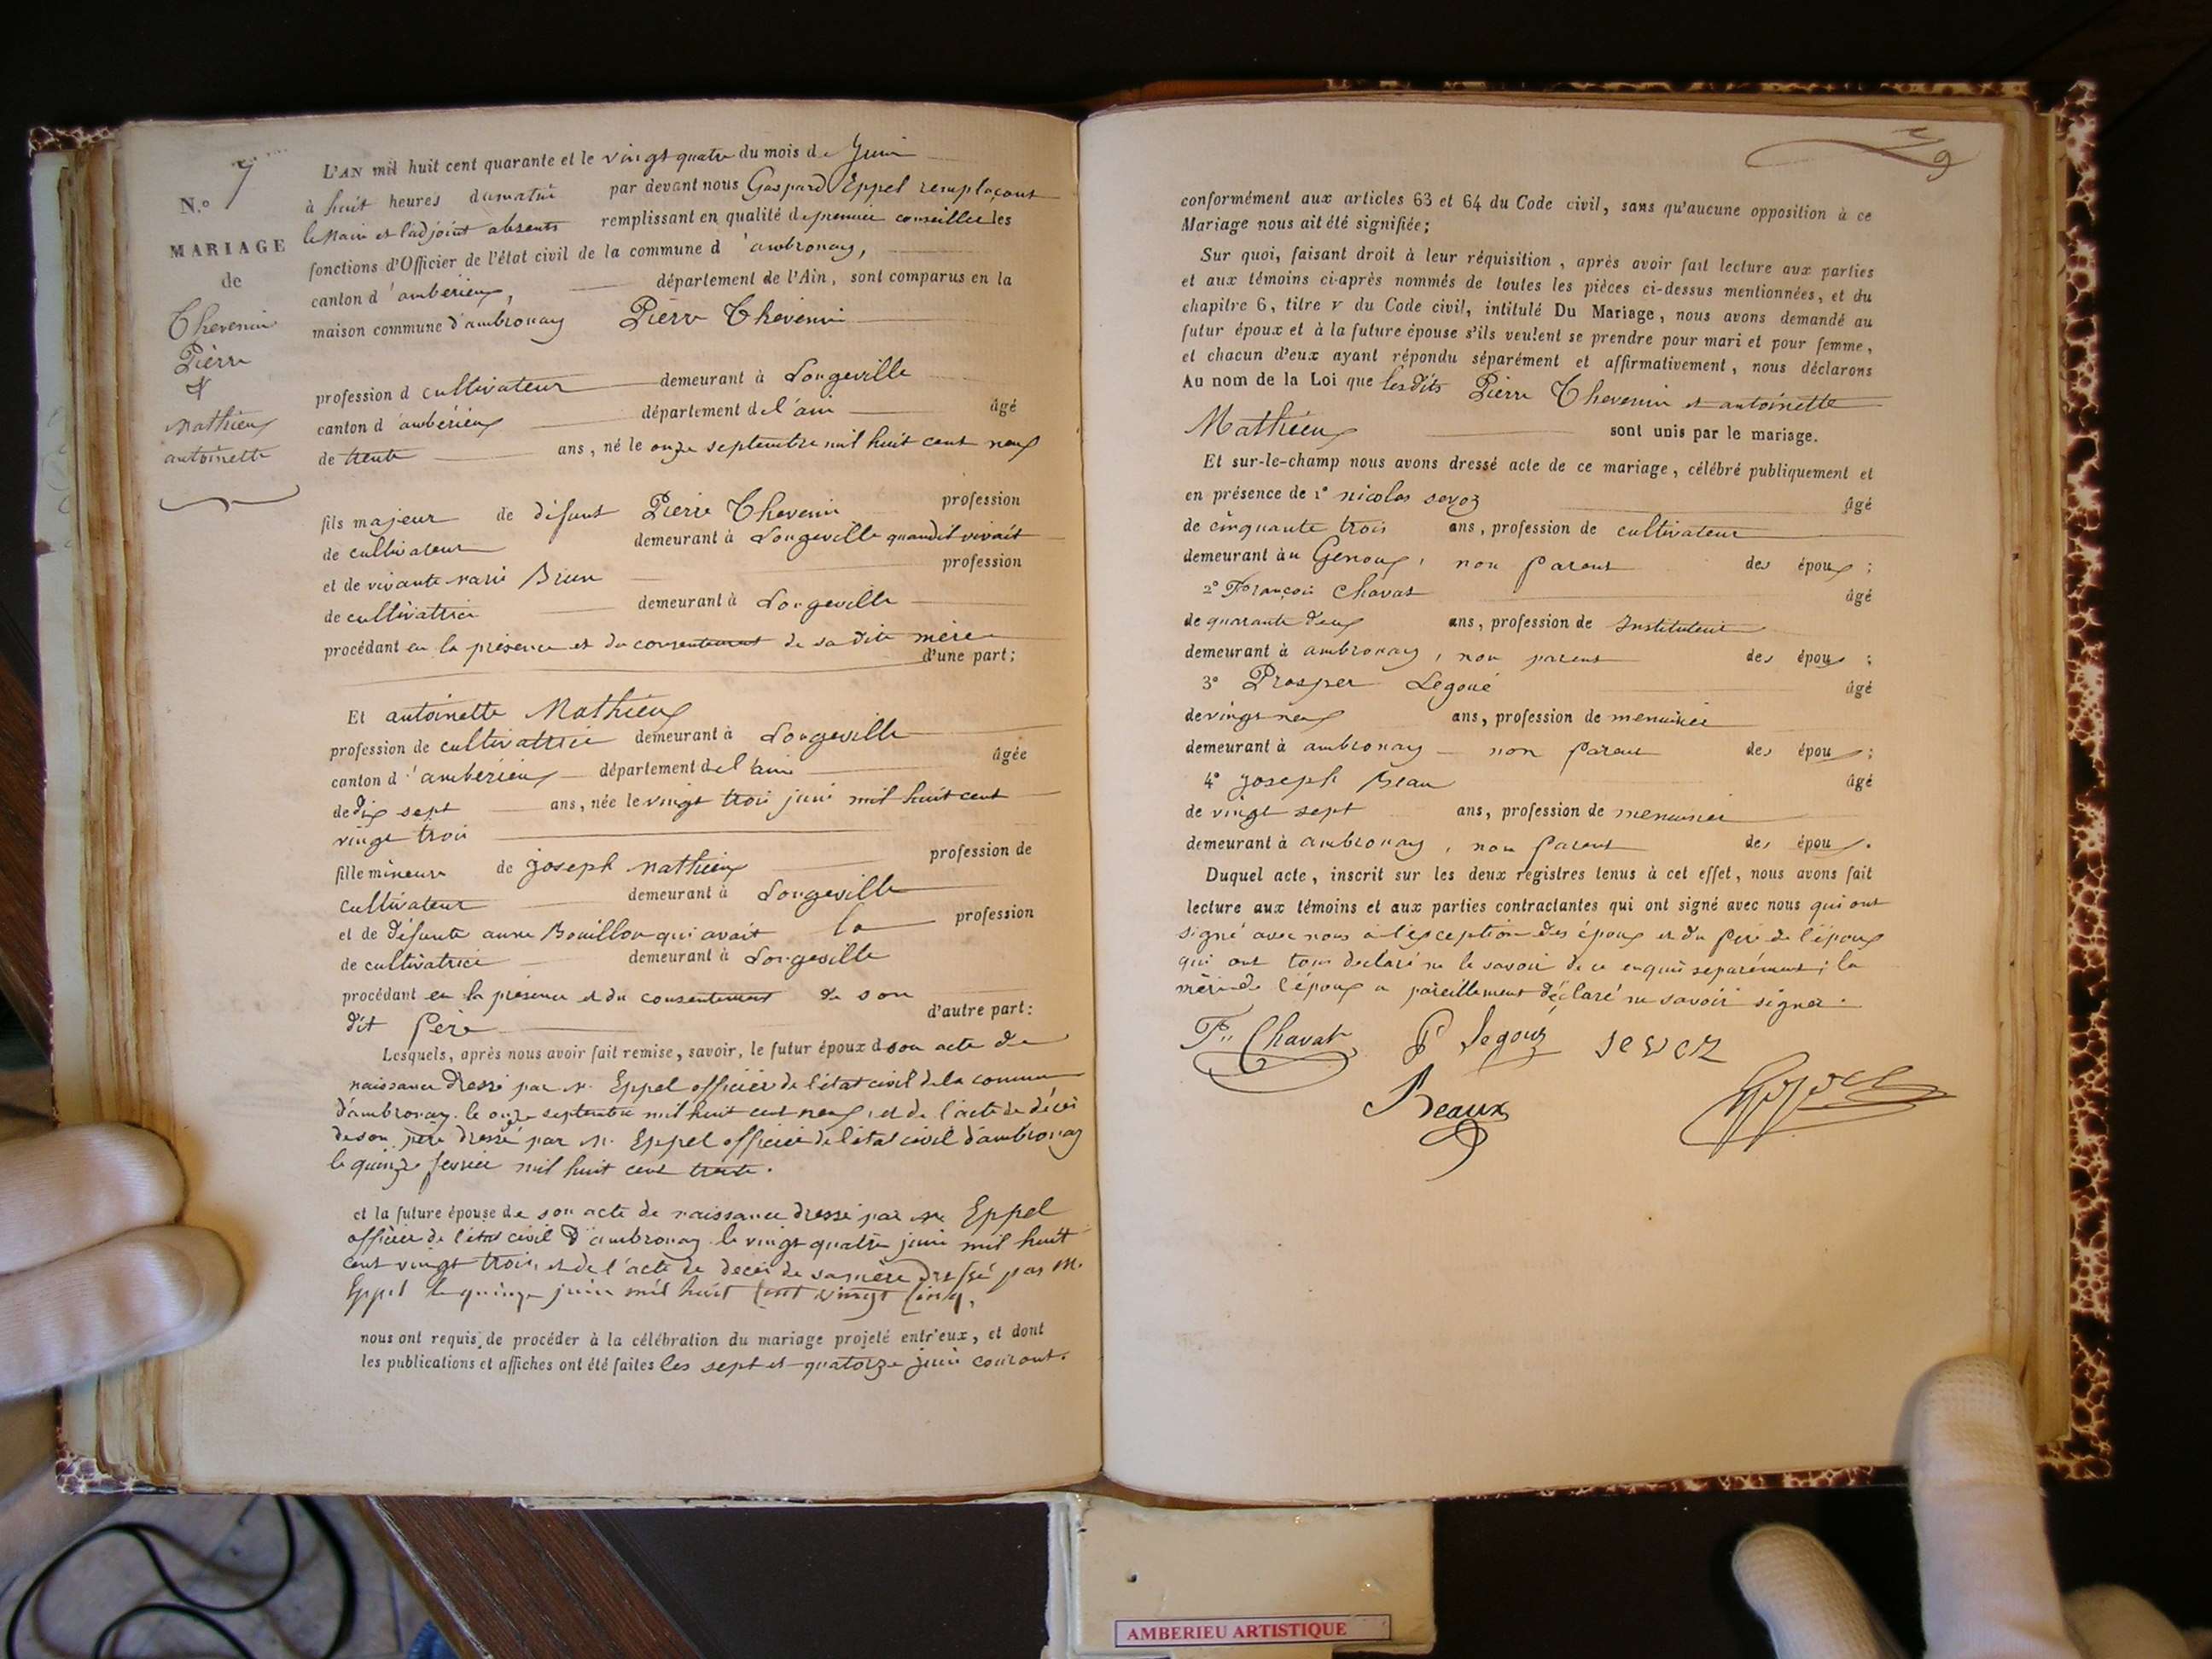 N.º 7
MARIAGE
de
Thevenin
Pierre
&
Mathieux
antoinette
L'AN mil huit cent quarante et le vingt quatre du mois de Juin
à huit heures du matin par devant nous Gaspard Eppel remplaçant
le Maire et l'adjoint absents remplissant en qualité de premier conseiller les
fonctions d'Officier de l'état civil de la commune d'ambronay,
canton d'ambérieux, département de l'Ain, sont comparus en la
maison commune d'ambronay Pierre Thevenin
profession d cultivateur demeurant à Longeville
canton d'ambérieux département del'ain âgé
de trente ans, né le onze septembre mil huit cent neuf
fils majeur de défunt Pierre Thevenin profession
de cultivateur demeurant à Longeville quand il vivait
et de vivante marie Brun profession
de cultivatrice demeurant à Longeville
procédant en la présence et du consentement de sa dite mère
d'une part;
Et antoinette Mathieux
profession de cultivatrice demeurant à Longeville
canton d'ambérieux département del'ain âgée
de dix sept ans, née le vingt trois juin mil huit cent
vingt trois
fille mineure de joseph mathieux profession de
cultivateur demeurant à Longeville
et de défunte anne Bouillon qui avait la profession
de cultivatrice demeurant à Longeville
procédant en la présence et du consentement de son
dit Père d'autre part:
Lesquels, après nous avoir fait remise, savoir, le futur époux d son acte de
naissance dressé par M. Eppel officier de l'état civil de la commune
d'ambronay le onze septembre mil huit cent neuf, et de l'acte de décès
de son père dressé par M. Eppel officier de l'état civil d'ambronay
le quinze fevrier mil huit cent trente.
et la future épouse de son acte de naissance dressé par M. Eppel
officier de l'état civil d'ambronay le vingt quatre juin mil huit
cent vingt trois, et de l'acte de décès de sa mère dressé par M.
Eppel le quinze juin mil huit cent vingt cinq,
nous ont requis de procéder à la célébration du mariage projeté entr'eux, et dont
les publications et affiches ont été faites les sept et quatorze juin courant.
conformément aux articles 63 et 64 du Code civil, sans qu'aucune opposition à ce
Mariage nous ait été signifiée;
Sur quoi, faisant droit à leur réquisition, après avoir fait lecture aux parties
et aux témoins ci-après nommés de toutes les pièces ci-dessus mentionnées, et du
chapitre 6, titre v du Code civil, intitulé Du Mariage, nous avons demandé au
futur époux et à la future épouse s'ils veulent se prendre pour mari et pour femme,
et chacun d'eux ayant répondu séparément et affirmativement, nous déclarons
Au nom de la Loi que lesdits Pierre Thevenin et antoinette
Mathieux sont unis par le mariage.
Et sur-le-champ nous avons dressé acte de ce mariage, célébré publiquement et
en présence de 1º nicolas sevoz âgé
de cinquante trois ans, profession de cultivateur
demeurant àu Genoux, non Parent des époux;
2º François Chavat âgé
de quarante deux ans, profession de Instituteur
demeurant à ambronay, non parent des époux;
3º Prosper Legoué âgé
de vingt neuf ans, profession de menuisier
demeurant à ambronay non Parent des époux;
4º joseph Beau âgé
de vingt sept ans, profession de menuisier
demeurant à ambronay, non Parent des époux.
Duquel acte, inscrit sur les deux registres tenus à cet effet, nous avons fait
lecture aux témoins et aux parties contractantes qui ont signé avec nous qui ont
signé avec nous à l'exception des époux et du Père de l'époux
qui ont tous declaré ne le savoir de ce enquis separément; la
mère de l'époux a pareillement déclaré ne savoir signer.
F.. Chavat P Legouz sevoz
Beaux Eppel
AMBERIEU ARTISTIQUE